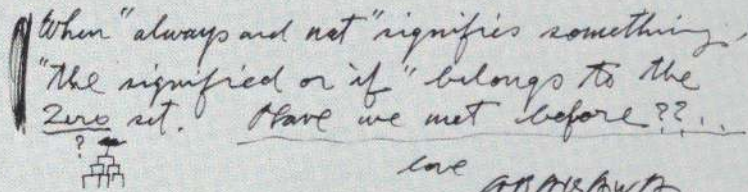 When "always and not" signifies something,
"the signified or if" belongs to the
Zero set. Have we met before??...
?
love
ARAKAWA